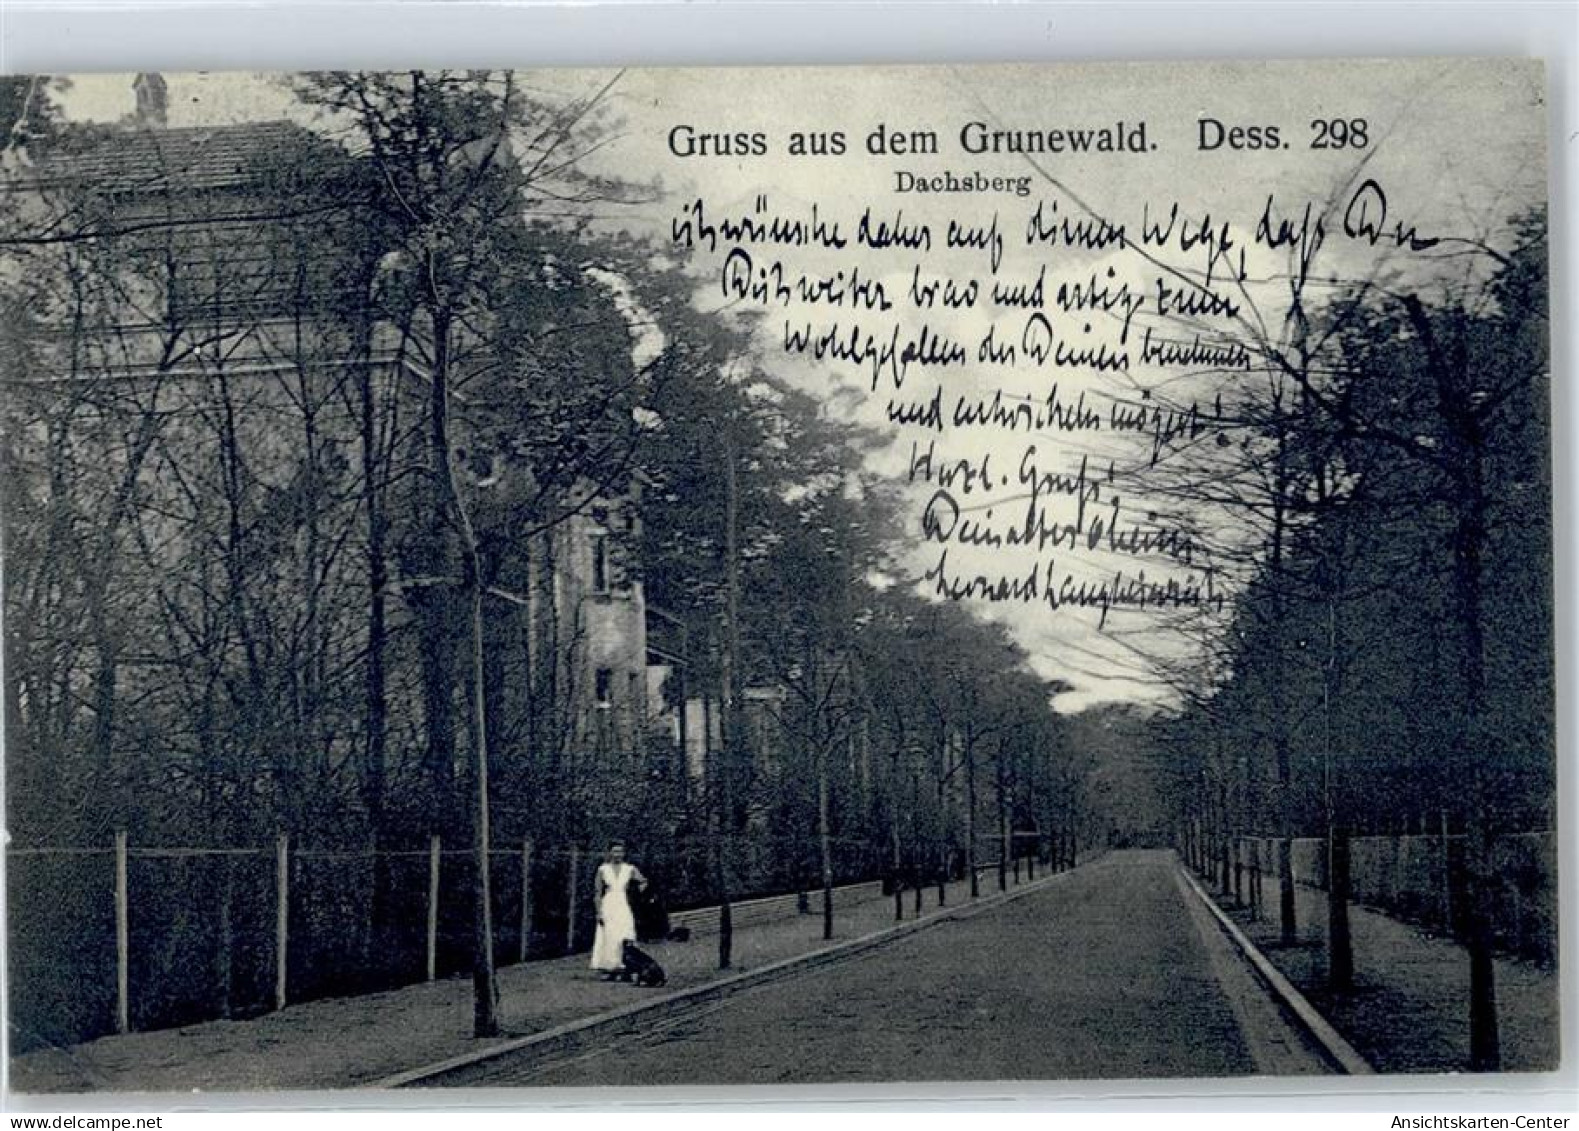 Gruss aus dem Grunewald. Dess. 298
Dachsberg
ich wünsche daher auf diesem Wege, daß Du
Dich weiter brav und artig zum
Wohlgefallen der Deinen benehmen
und entwickeln mögest!
Herzl. Gruß!
Dein alter Oheim
Leonard
www.delcampe.net
Ansichtskarten-Center